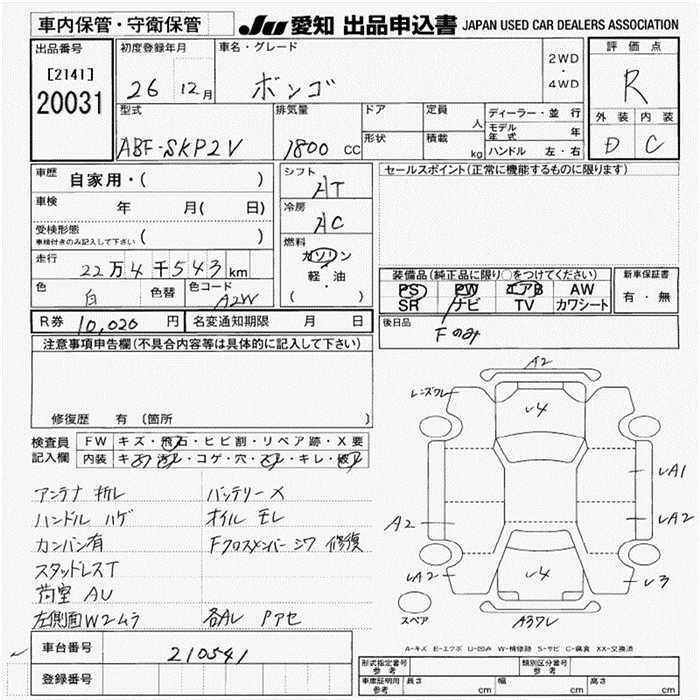 車内保管・守衛保管
JU 愛知 出品申込書 JAPAN USED CAR DEALERS ASSOCIATION
出品番号
[2141]
20031
初度登録年月
26 12月
車名・グレード
ボンゴ
2WD
・
4WD
評価点
R
外装 内装
D C
型式
ABF-SKP2V
排気量
1800 CC
ドア
形状
定員
人
積載
kg
ディーラー・並行
モデル年式 年
ハンドル 左・右
車歴 自家用・( )
車検 年 月( 日)
受検形態
車検付きのみ記入して下さい ( )
走行 22万4千543km
色 白 色替 色コード A2W
R券 10,020 円 名変通知期限 月 日
シフト
AT
冷房
AC
燃料
ガソリン
軽・油
( )
セールスポイント(正常に機能するものに限ります)
装備品(純正品に限り○をつけてください)
PS PW エアB AW
SR ナビ TV カワシート
新車保証書
有・無
後日品
Fのみ
注意事項申告欄(不具合内容等は具体的に記入して下さい)
修復歴 有 (箇所 )
検査員記入欄
FW キズ・飛石・ヒビ割・リペア跡・X要
内装 キズ・汚レ・コゲ・穴・スレ・キレ・破レ
アンテナ 折レ
ハンドル ハゲ
カンバン有
スタッドレスT
荷室 AU
左側面W2ムラ
バッテリーX
オイル モレ
Fクロスメンバー シワ 修復
各AL Pアセ
A2
レンズワレ
レ4
A2
レA2
レ4
レA1
レA2
レ3
A3ワレ
スペア
A-キズ E-エクボ U-凹み W-補修跡 S-サビ C-腐食 XX-交換済
車台番号 210541
登録番号
形式指定番号
参考
類別区分番号
参考
車庫証明用
参考
長さ cm 幅 cm 高さ cm